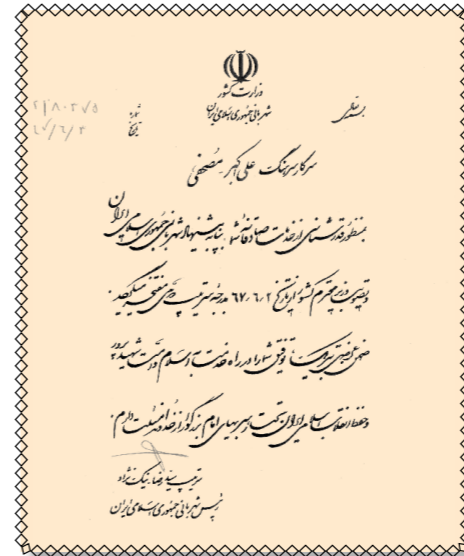 وزارت کشور
شهربانی جمهوری اسلامی ایران
بسمه تعالی
شماره
تاریخ ۶۷/۶/۲
سرکار سرهنگ علی اکبر مصحفی
بمنظور قدرشناسی از خدمات صادقانه شما بنا به پیشنهاد شهربانی جمهوری اسلامی ایران
و تصویب وزیر محترم کشور از تاریخ ۶۷/۶/۲ بدرجه سرتیپ دومی مفتخر میگردید.
ضمن عرض تبریک توفیق شما را در راه خدمت به اسلام و امت شهید پرور
و حفظ انقلاب اسلامی ایران تحت رهبریهای امام بزرگوار از خداوند مسئلت دارم.
سرتیپ سید رضا نیک نژاد
رئیس شهربانی جمهوری اسلامی ایران